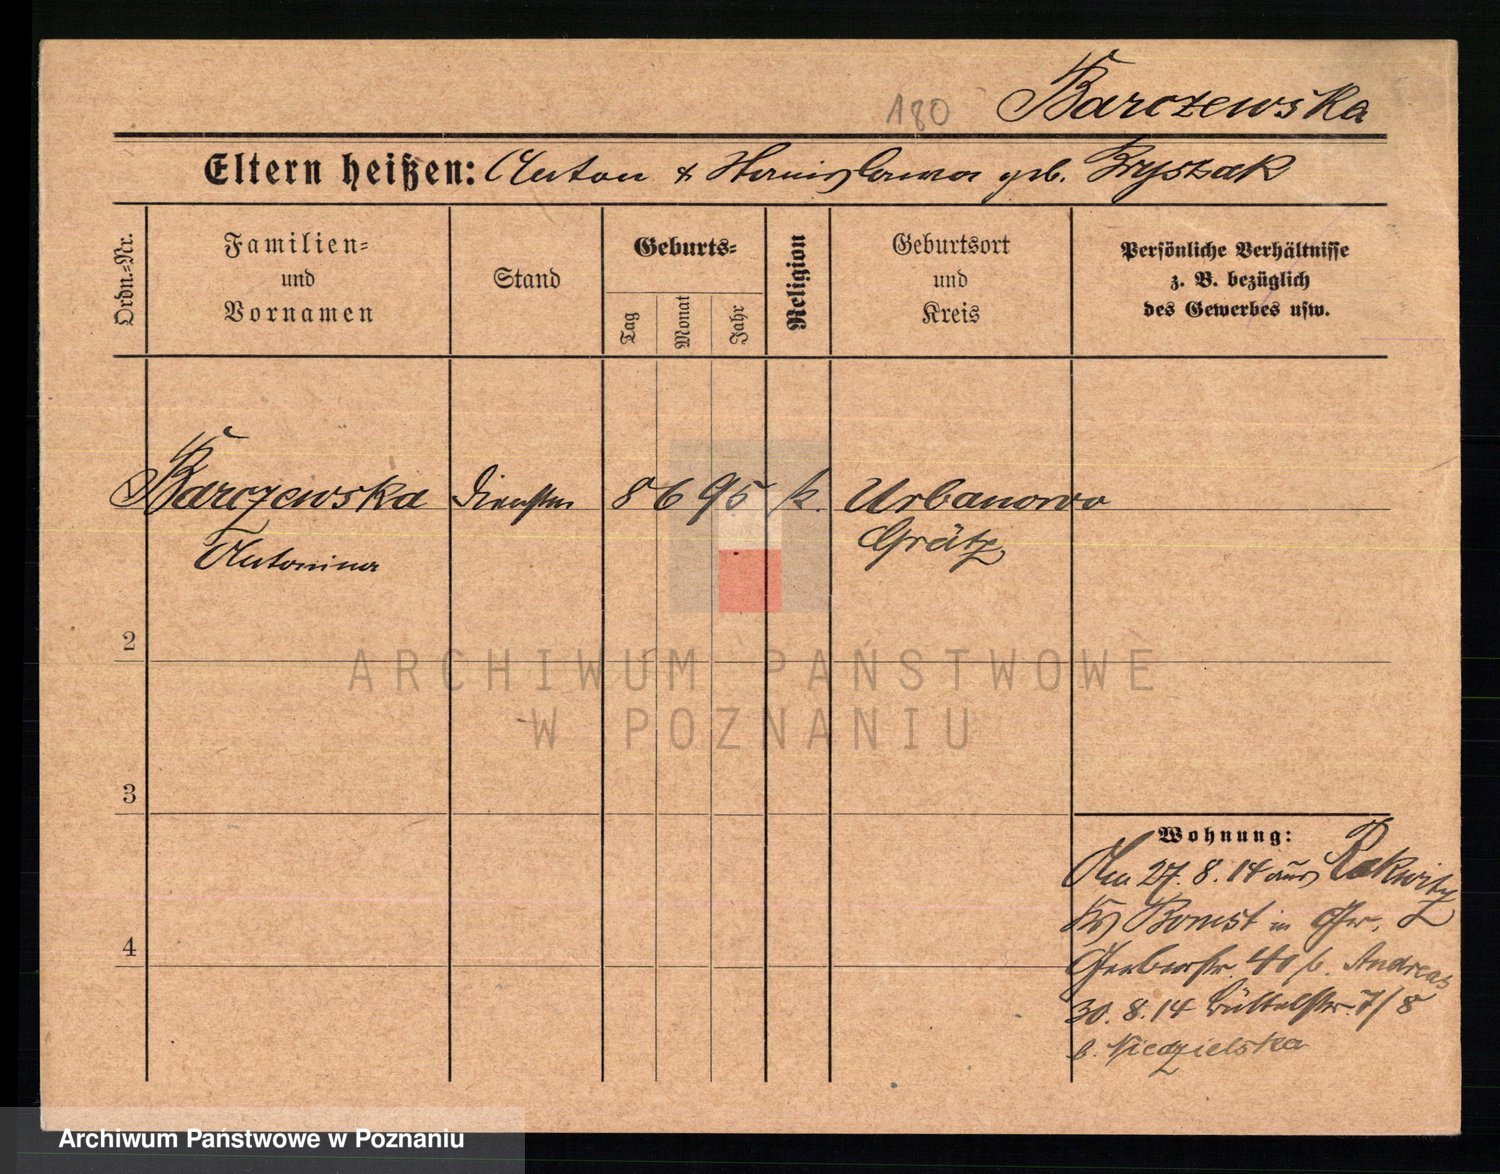 180 Barczewska
Eltern heißen: Anton & Stanislawa geb. Bryszak
Ordn.=Nr.
Familien=
und
Vornamen
Stand
Geburts=
Tag
Monat
Jahr
Religion
Geburtsort
und
Kreis
Persönliche Verhältnisse
z. B. bezüglich
des Gewerbes usw.
Barczewska
Antonina
8 6 95 k. Urbanowo
Grätz
2
3
4
Wohnung:
Am 27. 8. 14 aus Rakwitz
Kr Bomst in
Gerberstr. 40 b. Andreas
30. 8. 14 Büttelstr. 7/8
b. Niedzielska
ARCHIWUM PAŃSTWOWE
W POZNANIU
Archiwum Państwowe w Poznaniu